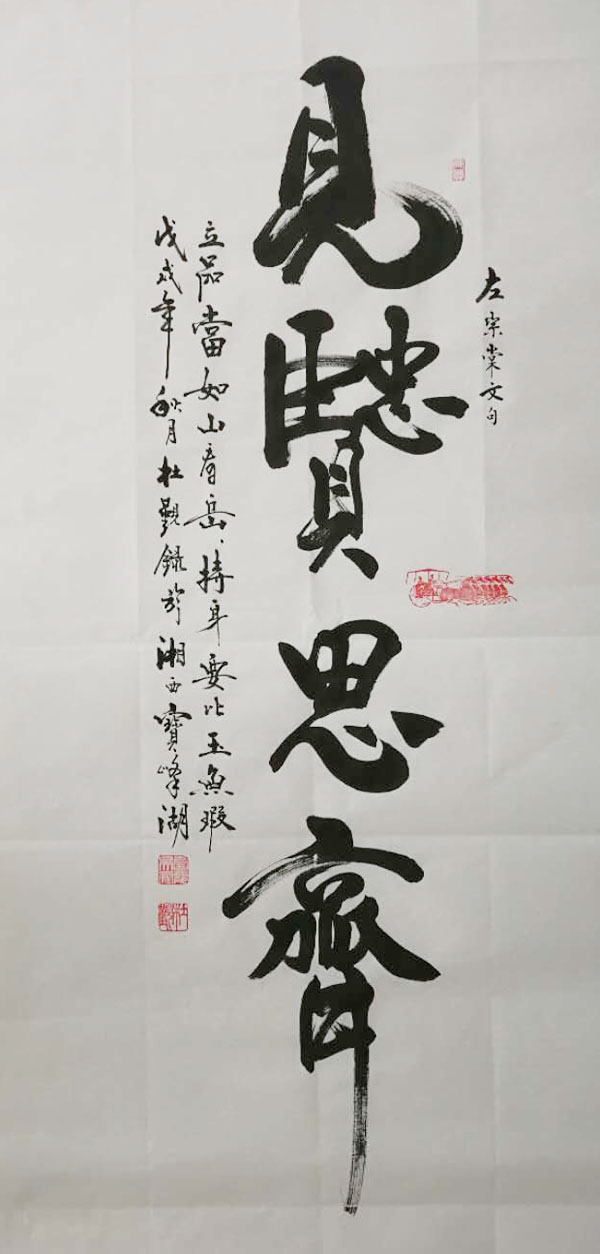 左宗棠文句
見贒思齊
立品當如山有岳、持身要比玉無瑕
戊戌年秋月杜觀錄於湘西寶峰湖